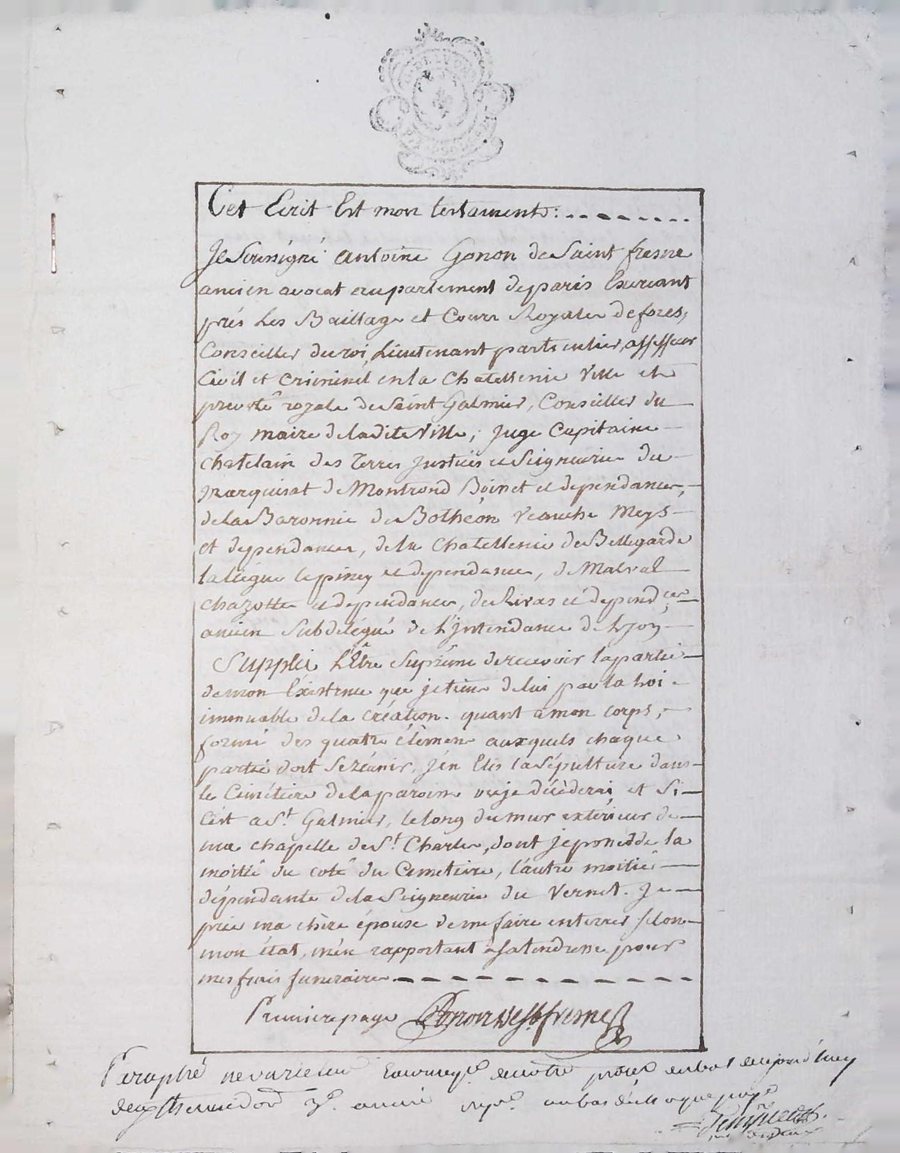 Cet Ecrit Est mon testament :
Je Soussigné antoine Gonon de Saint fresne
ancien avocat au parlement de paris Exercant
prés Les Baillage et Cour Royale de forez,
Conseiller du roi, Lieutenant particulier, assesseur
Civil et Criminel en la Chatellenie Ville et
prevôté royale de Saint Galmier, Conseiller du
Roy maire de la dite Ville, juge Capitaine
chatelain des Terres justices et Seigneurie du
marquisat de Montrond Boinet et dependances,
de la Baronnie de Bothéon Veauche Meys
et dependances, de la Chatellenie de Bellegarde
la liegue lepiney et dependance, de Malval
chazotte et dependances, de Rivas et dependces
ancien Subdelégué de L'Intendance de Lyon
Supplie L'Être Suprême de recevoir la partie
de mon Existence que je tiens de lui par la loi
immuable de la création. quant a mon corps,
formé des quatre élémens auxquels chaque
partie doit se réunir, j'en Elis la Sépulture dans
le Cimétiere de la paroisse ou je décèderai et Si
c'est a St. Galmier, le long du mur extérieur de
ma chapelle de St. Charles, dont je possede la
moitié du coté du Cemetiere, l'autre moitié
dépendante de la Seigneurie du Vernet. Je
prie ma chère épouse de me faire enterrer selon
mon état, m'en rapportant a sa tendresse pour
mes frais funeraires
Premiere page Gonon de St fresne
Paraphé ne varietur au bas
3e. année au bas de chaque page